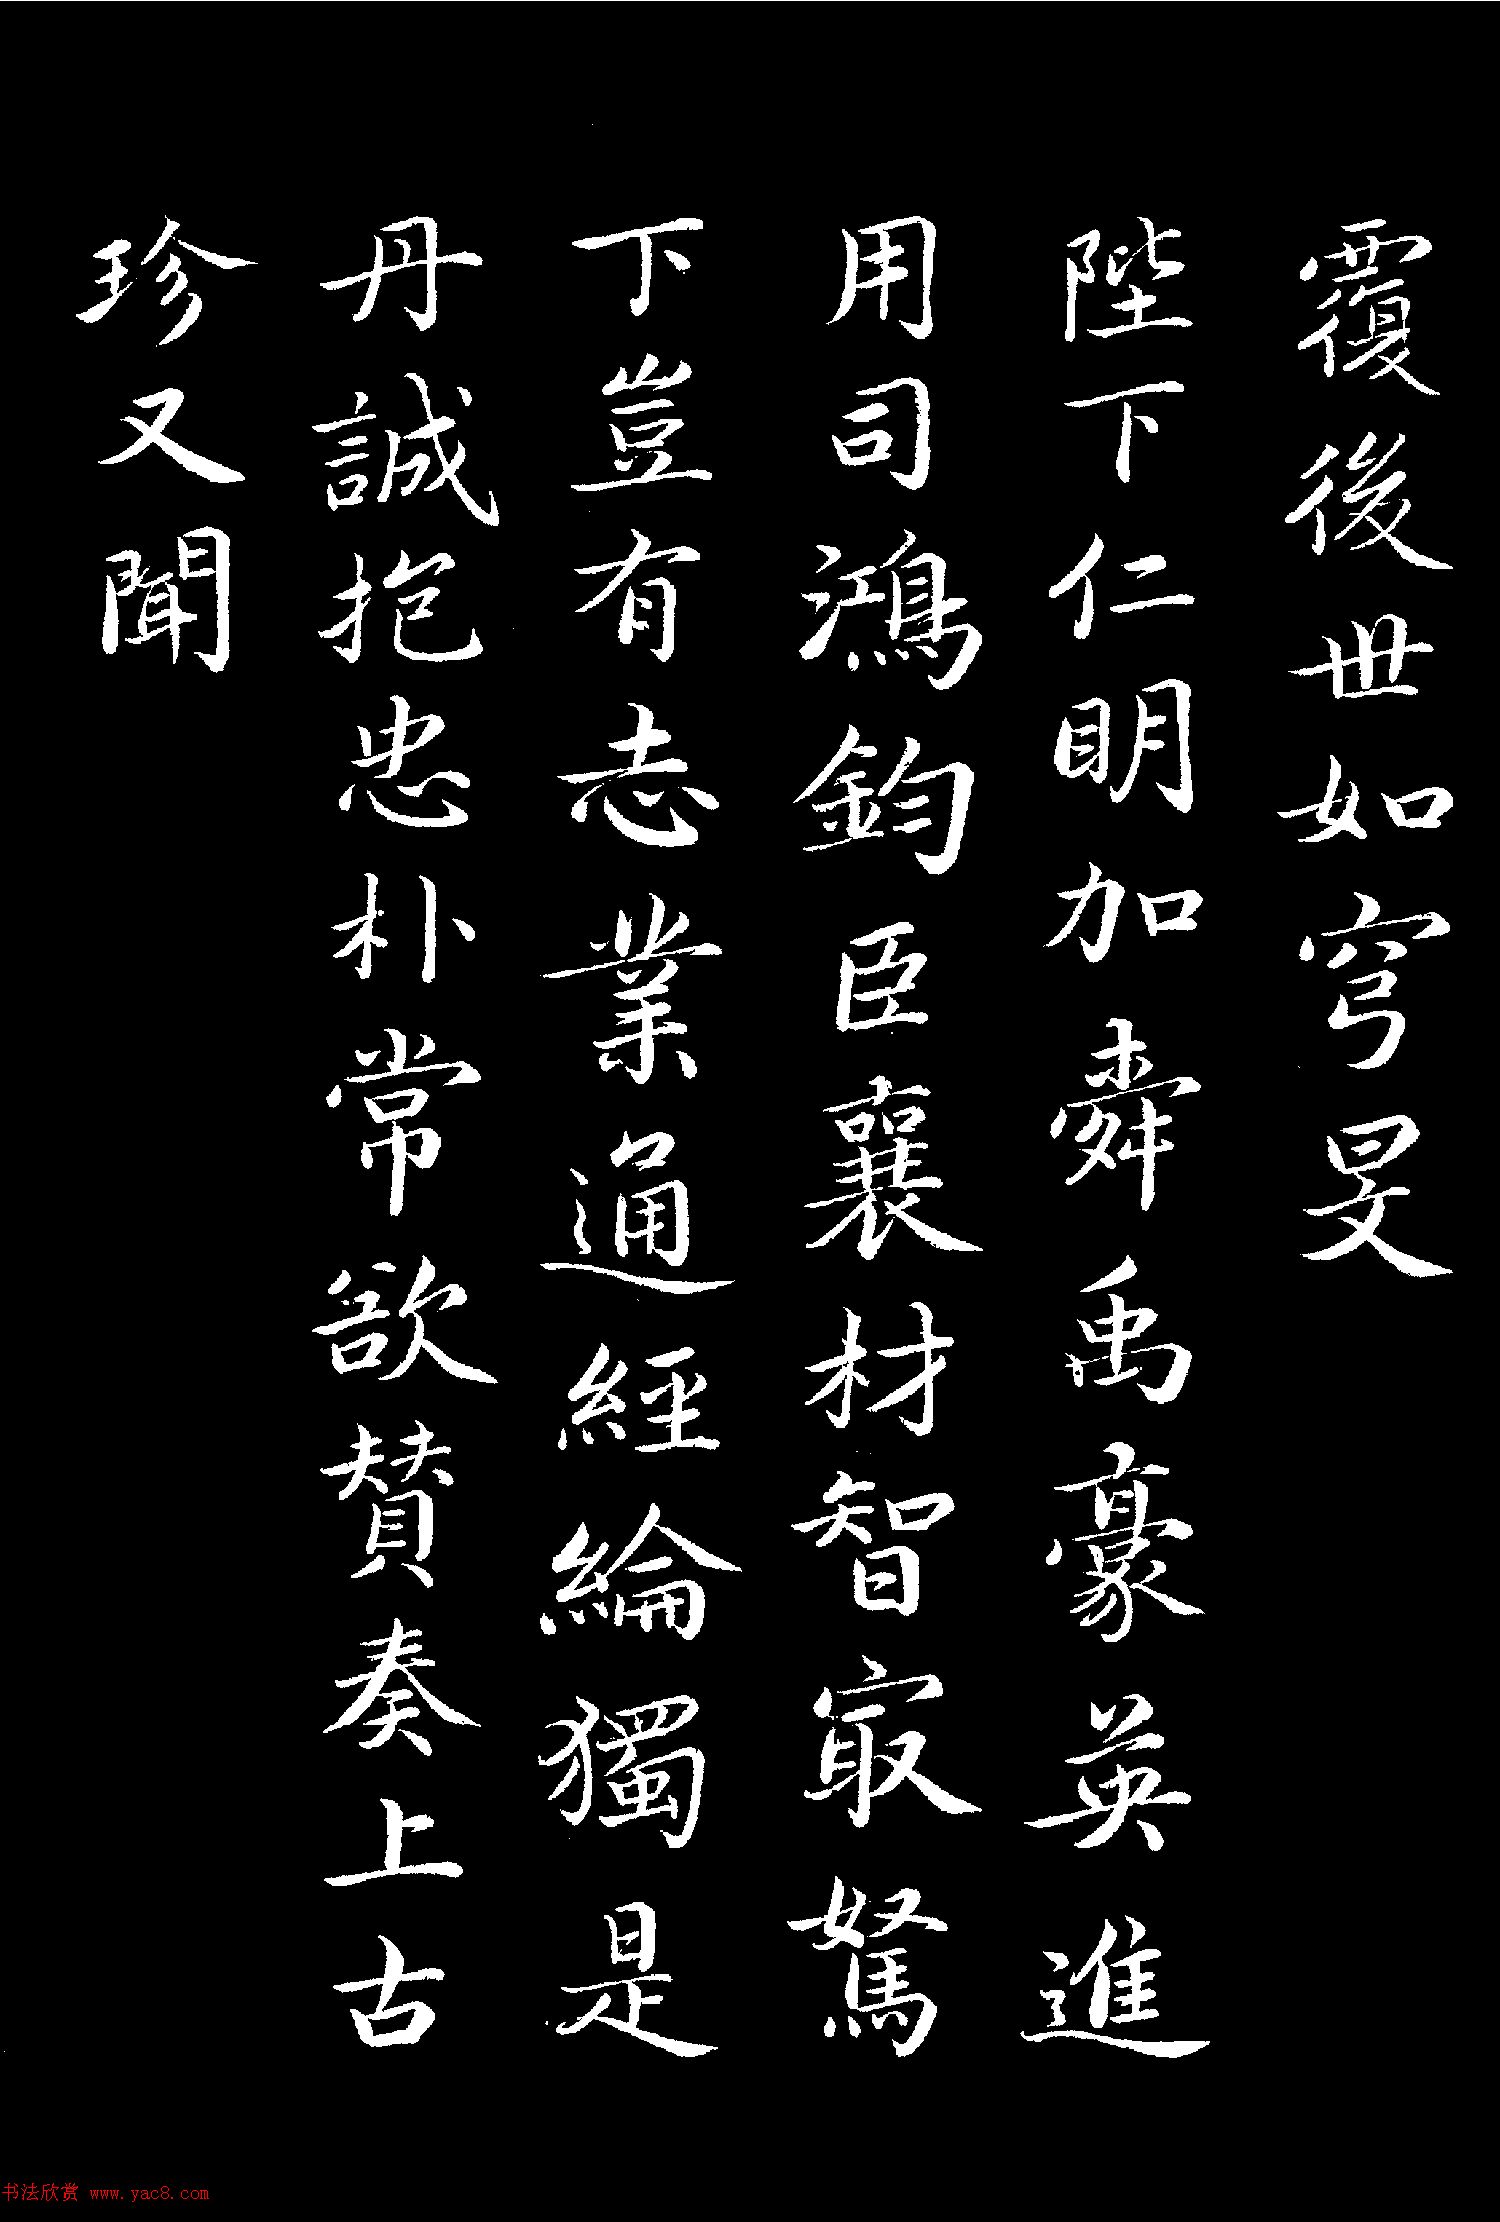 覆後世如穹旻
陛下仁明加舜禹豪英進
用司鴻鈞臣襄材智㝡駑
下豈有志業通經綸獨是
丹誠抱忠朴常欲賛奏上古
珍又聞
书法欣赏 www.yac8.com